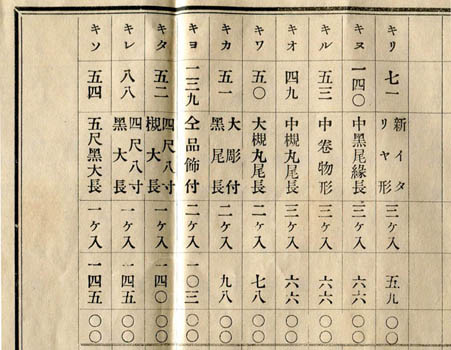 キリ 七一 新イタリヤ形 三ケ入 五九 〇〇
キヌ 一四〇 中黒尾緣長 三ケ入 六六 〇〇
キル 五三 中卷物形 三ケ入 六六 〇〇
キオ 四九 中槻丸尾長 三ケ入 六六 〇〇
キワ 五〇 大槻丸尾長 二ケ入 七八 〇〇
キカ 五一 大彫付黒尾長 二ケ入 九八 〇〇
キヨ 一三九 仝品飾付 二ケ入 一〇三 〇〇
キタ 五二 四尺八寸槻大長 一ケ入 一四〇 〇〇
キレ 八八 四尺八寸黒大長 一ケ入 一四五 〇〇
キソ 五四 五尺黒大長 一ケ入 一四五 〇〇